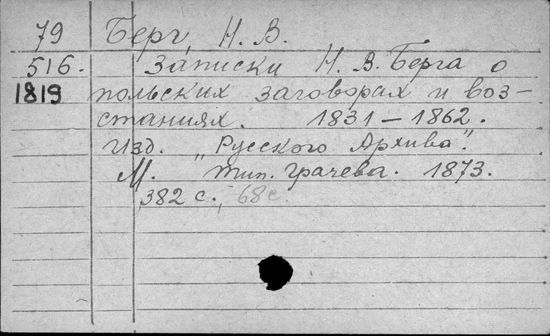 79 Берг, Н. В.
516. Записки Н. В. Берга о
1819 польских заговорах и воз-
станиях. 1831 – 1862.
Изд. „Русского Архива".
М. тип. Грачева. 1873.
382 с., 68 с.